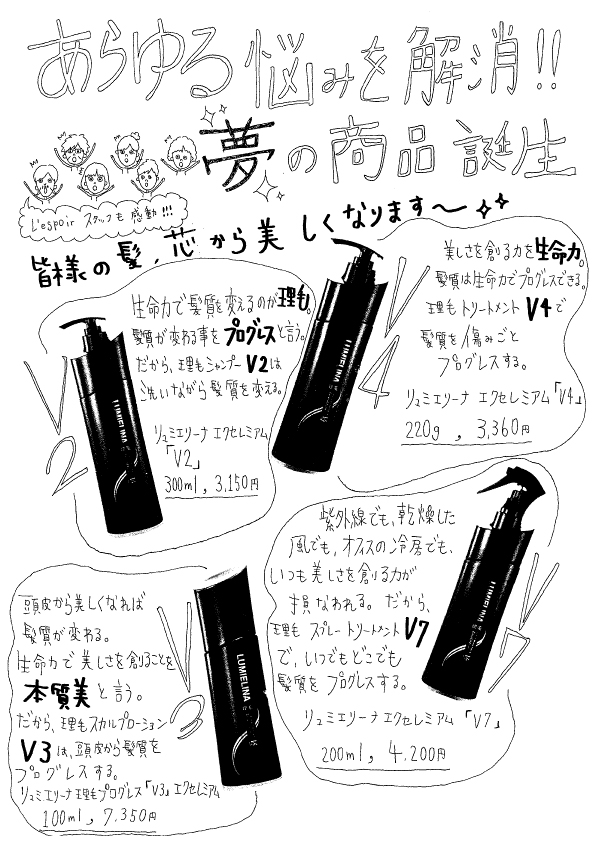 あらゆる悩みを解消!!
夢の商品誕生
L'espoir スタッフも感動!!!
皆様の髪、芯から美しくなります〜
生命力で髪質を変えるのが理毛。
髪質が変わる事をプログレスと言う。
だから、理毛シャンプーV2は
洗いながら髪質を変える。
リュミエリーナ エクセレミアム
「V2」
300ml , 3,150円
V2
LUMIELINA
美しさを創る力を生命力。
髪質は生命力でプログレスできる。
理毛トリートメント V4で
髪質を傷みごと
プログレスする。
リュミエリーナ エクセレミアム「V4」
220g , 3,360円
V4
LUMIELINA
頭皮から美しくなれば
髪質が変わる。
生命力で美しさを創ることを
本質美と言う。
だから、理毛スカルプローション
V3は、頭皮から髪質を
プログレスする。
リュミエリーナ理毛プログレス「V3」エクセレミアム
100ml , 7,350円
V3
LUMIELINA
紫外線でも、乾燥した
風でも、オフィスの冷房でも、
いつも美しさを創る力が
損なわれる。だから、
理毛 スプレートリートメント V7
で、いつでもどこでも
髪質をプログレスする。
リュミエリーナエクセレミアム 「V7」
200ml , 4.200円
V7
LUMIELINA